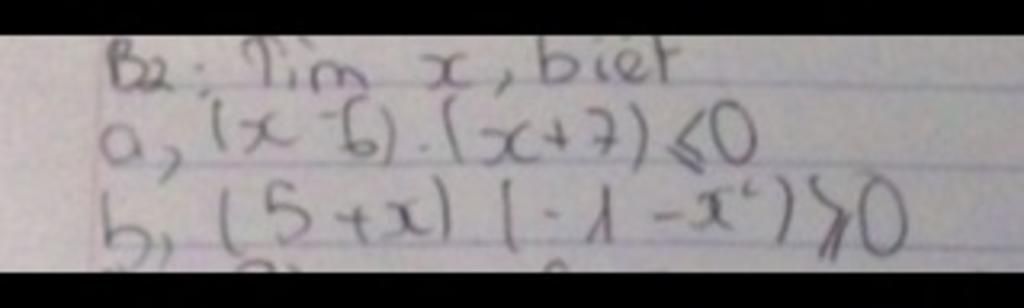 B2: Tìm x, biết
a, (x - 6).(x+7) ≤ 0
b, (5 + x) (-1 - x²) ≥ 0